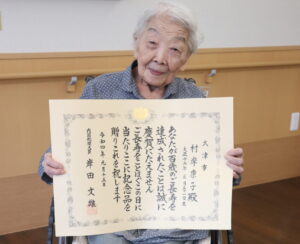 大津市
殿
あなたが百歳のご長寿を
達成されたことは誠に
慶賀にたえません
ご長寿をことほぐこの日に
当たりここに記念品を
贈りこれを祝します
令和四年九月十五日
内閣総理大臣 岸田文雄